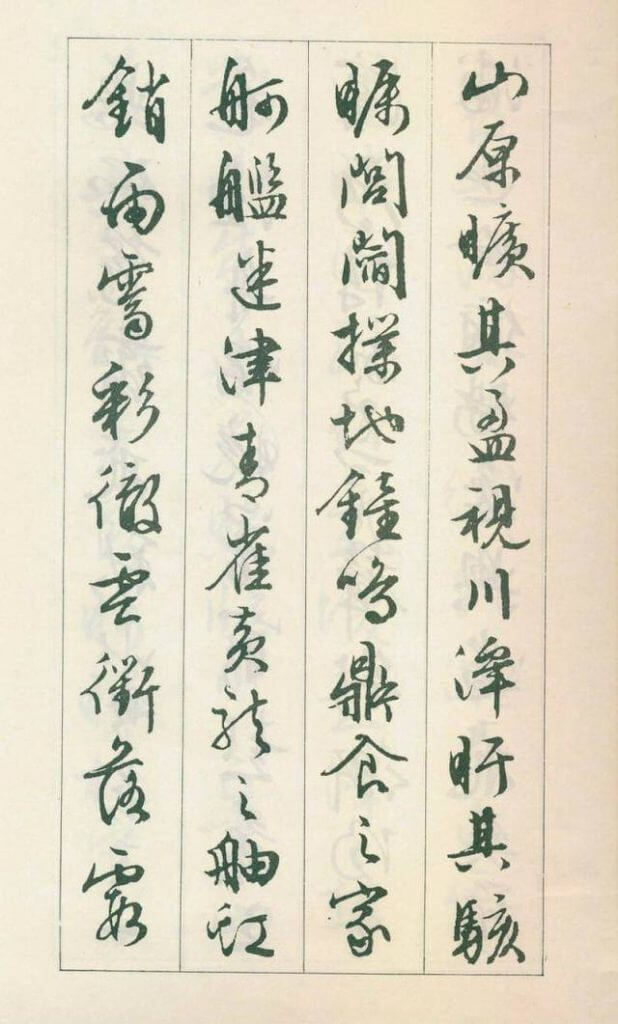 山原曠其盈視川澤盱其駭
矚閭閻撲地鐘鳴鼎食之家
舸艦迷津青雀黄龍之舳虹
銷雨霽彩徹云衢落霞